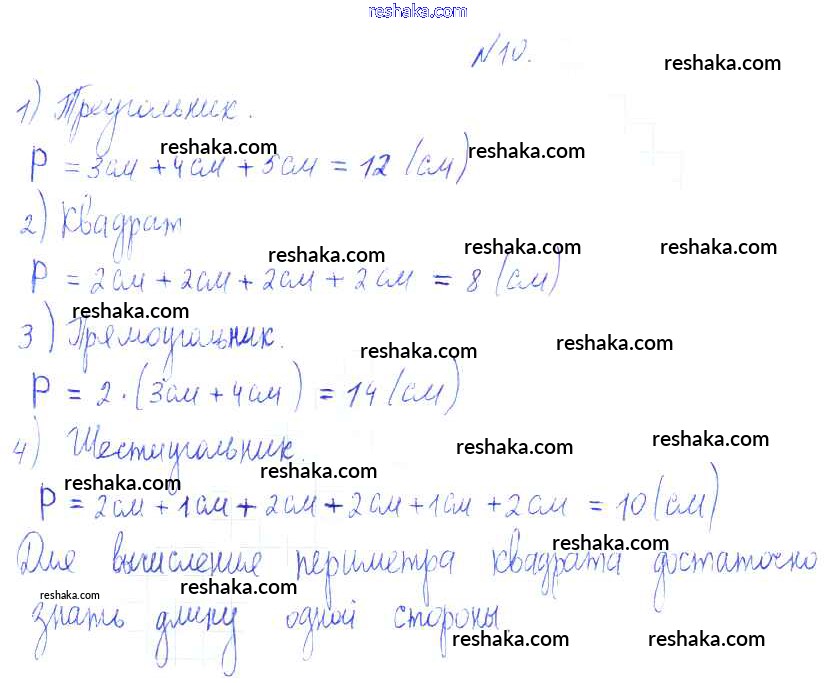 reshaka.com
№10.
reshaka.com
1) Треугольник.
reshaka.com
reshaka.com
P = 3см + 4см + 5см = 12 (см)
2) Квадрат
reshaka.com
reshaka.com
reshaka.com
P = 2см + 2см + 2см + 2см = 8 (см)
reshaka.com
3) Прямоугольник.
reshaka.com
reshaka.com
P = 2·(3см + 4см) = 14 (см)
4) Шестиугольник.
reshaka.com
reshaka.com
reshaka.com
reshaka.com
P = 2см + 1см + 2см + 2см + 1см + 2см = 10 (см)
reshaka.com
Для вычисления периметра квадрата достаточно
reshaka.com
reshaka.com
знать длину одной стороны
reshaka.com
reshaka.com